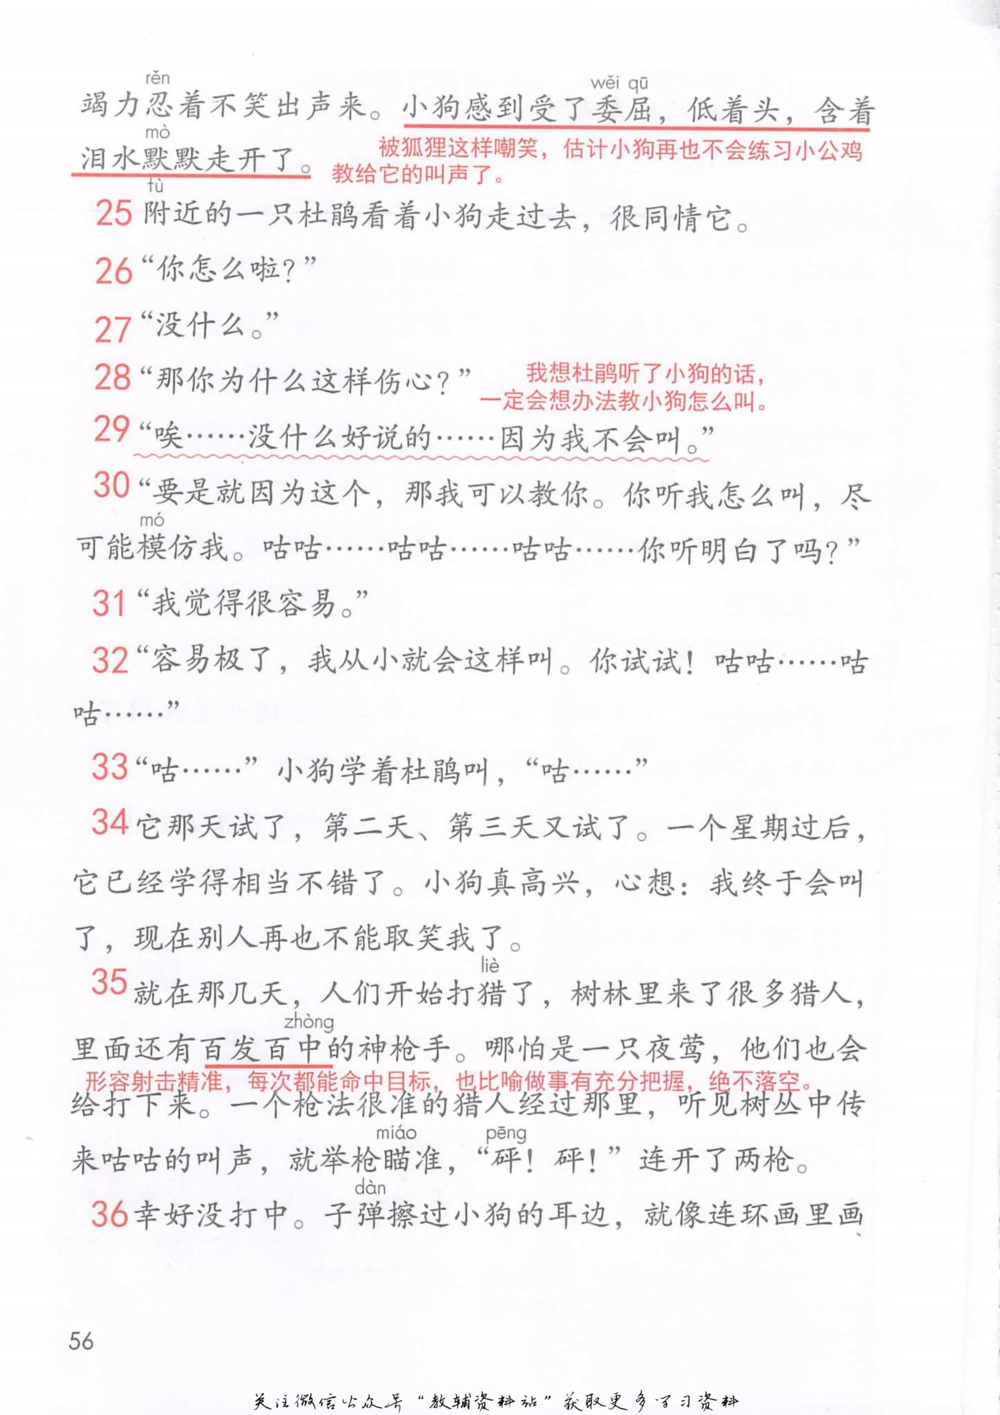 rěn wěi qū
竭力忍着不笑出声来。小狗感到受了委屈，低着头，含着
mò
泪水默默走开了。
被狐狸这样嘲笑，估计小狗再也不会练习小公鸡
教给它的叫声了。
fù
25 附近的一只杜鹃看着小狗走过去，很同情它。
26 “你怎么啦？”
27 “没什么。”
28 “那你为什么这样伤心？”
我想杜鹃听了小狗的话，
一定会想办法教小狗怎么叫。
29 “唉……没什么好说的……因为我不会叫。”
30 “要是就因为这个，那我可以教你。你听我怎么叫，尽
mó
可能模仿我。咕咕……咕咕……咕咕……你听明白了吗？”
31 “我觉得很容易。”
32 “容易极了，我从小就会这样叫。你试试！咕咕……咕
咕……”
33 “咕……”小狗学着杜鹃叫，“咕……”
34 它那天试了，第二天、第三天又试了。一个星期过后，
它已经学得相当不错了。小狗真高兴，心想：我终于会叫
了，现在别人再也不能取笑我了。
liè
35 就在那几天，人们开始打猎了，树林里来了很多猎人，
zhòng
里面还有百发百中的神枪手。哪怕是一只夜莺，他们也会
形容射击精准，每次都能命中目标，也比喻做事有充分把握，绝不落空。
给打下来。一个枪法很准的猎人经过那里，听见树丛中传
miáo pēng
来咕咕的叫声，就举枪瞄准，“砰！砰！”连开了两枪。
dàn
36 幸好没打中。子弹擦过小狗的耳边，就像连环画里画
56
关注微信公众号“教辅资料站”获取更多学习资料